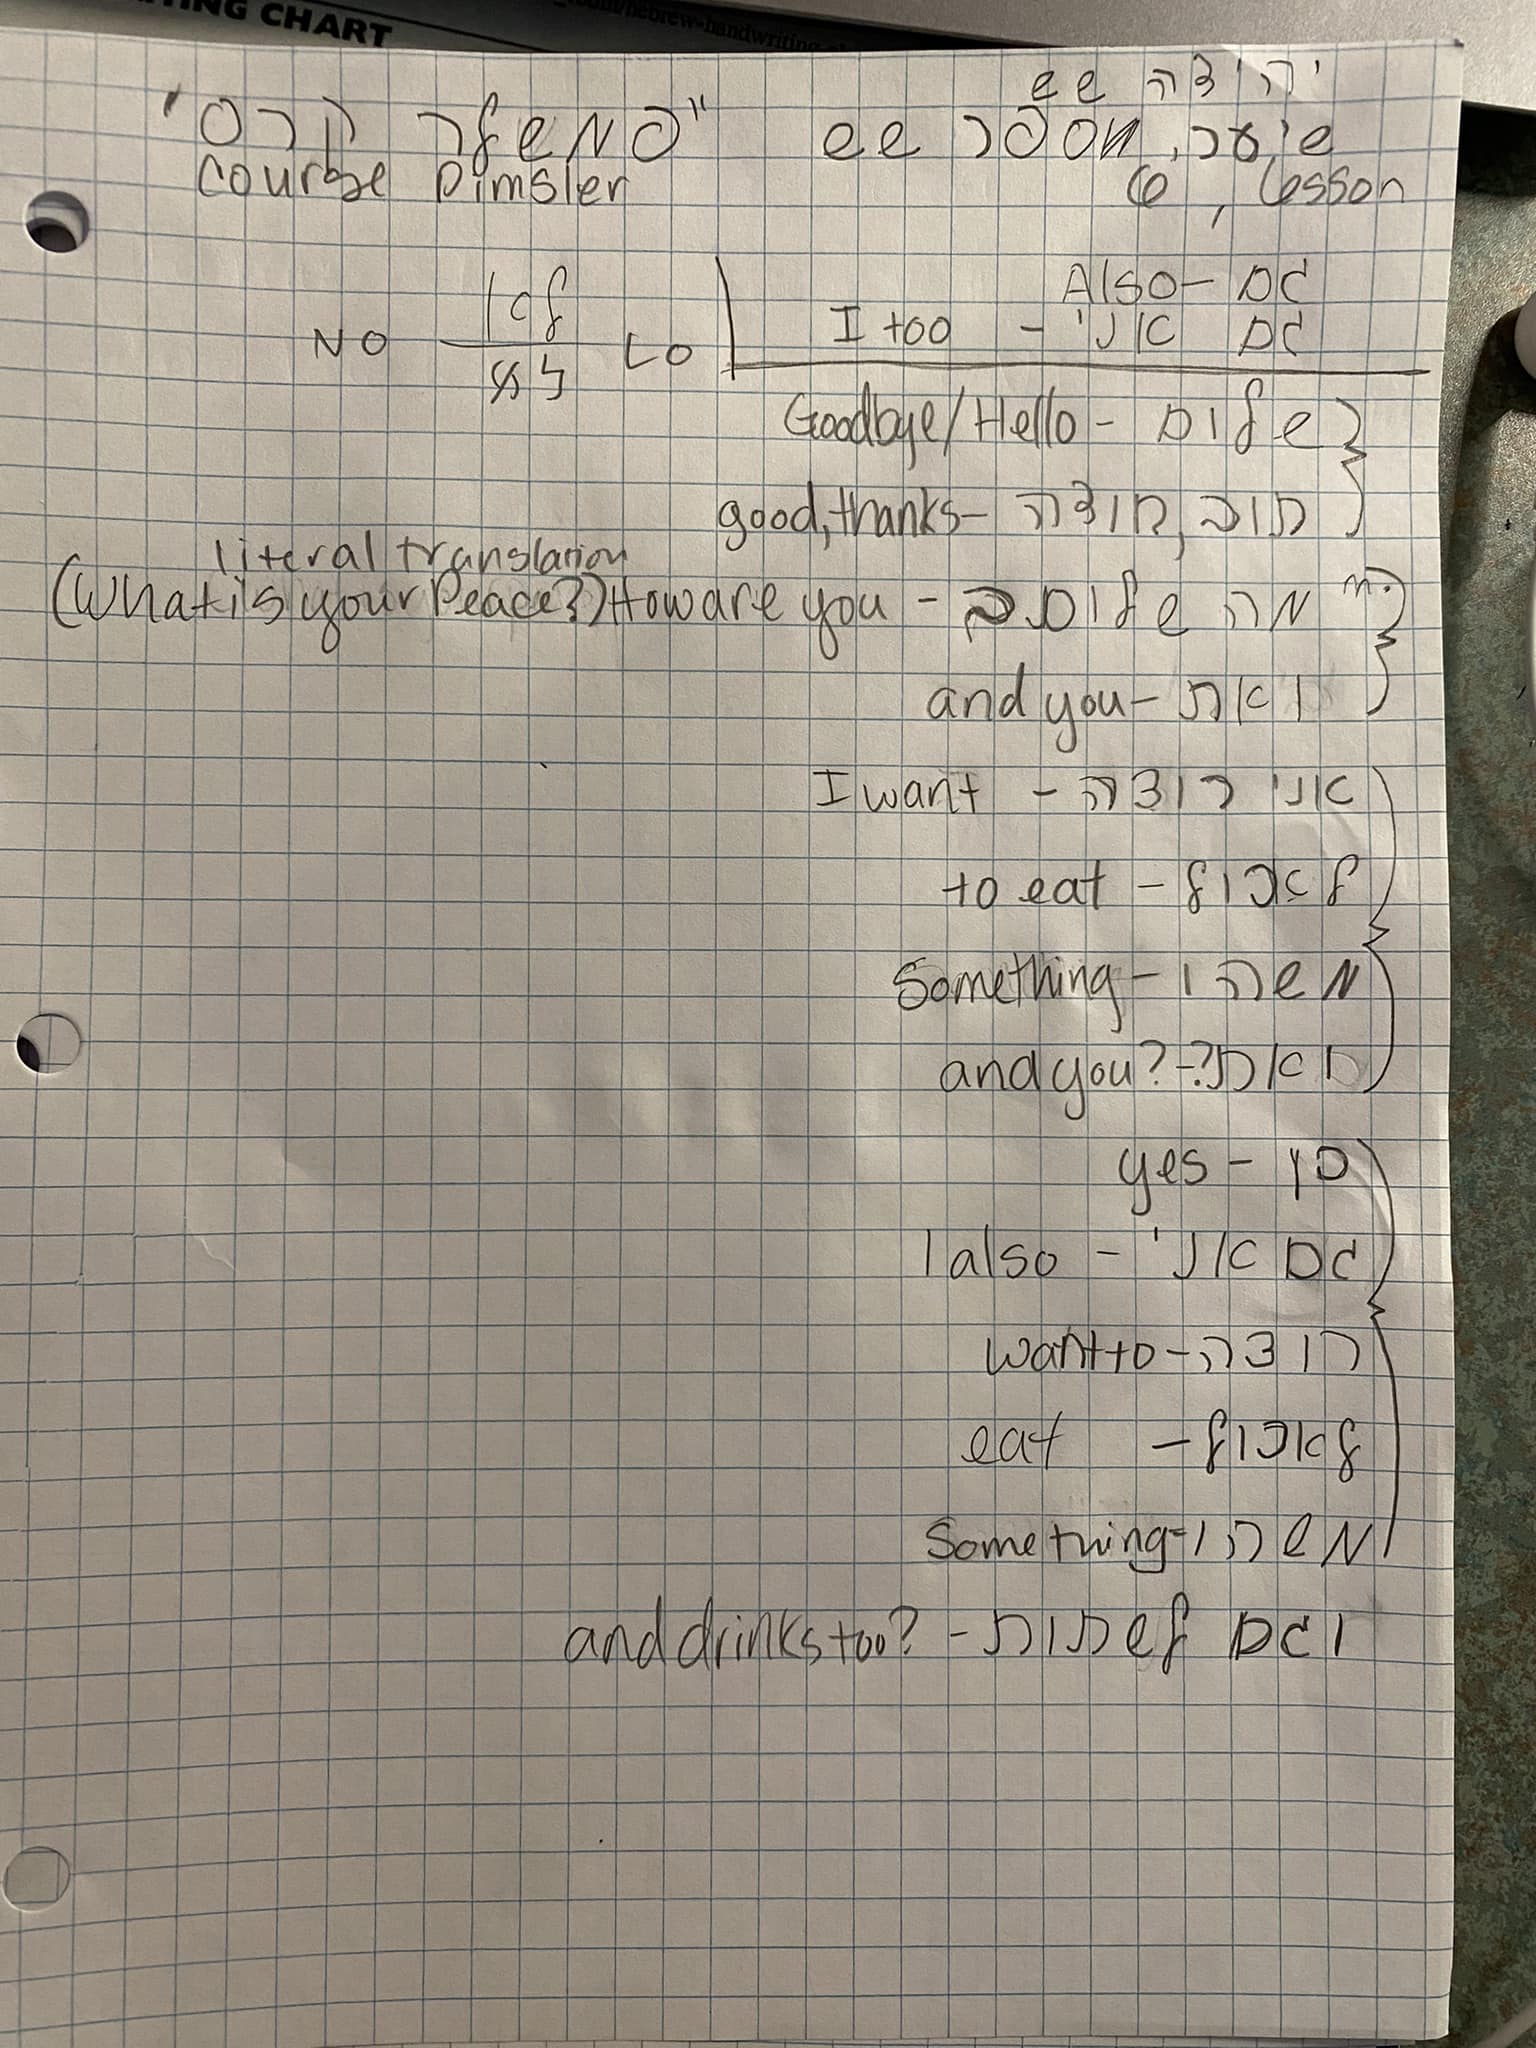 TING CHART
hebrew-handwriting
יחידה שש
שיעור, מספר שש "קורס פימסלר"
Course Pimsler 6, Lesson
Also - גם
I too - גם אני
NO לא Lo
לא
Goodbye/Hello - שלום
good, thanks - טוב, תודה
literal translation
(What is your Peace?) How are you - מה שלומך
m.
and you - ואת
I want - אני רוצה
to eat - לאכול
Something - משהו
and you? - ואת?
yes - כן
I also - גם אני
want to - רוצה
eat - לאכול
Something - משהו
and drinks too? - וגם לשתות